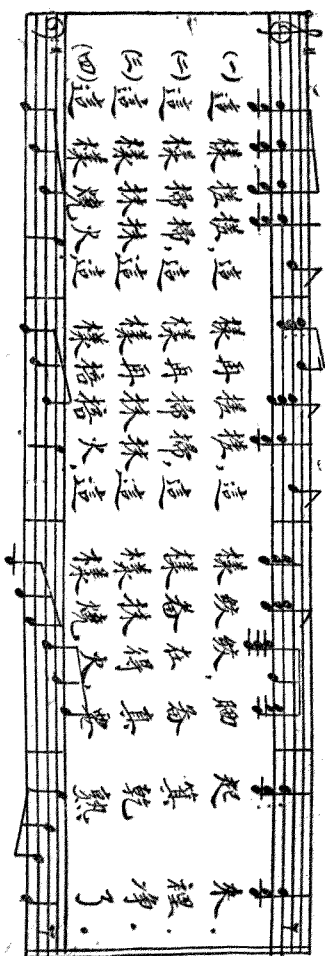 (一)這樣搓搓,這樣再搓搓,這樣絞絞,晒起來.
(二)這樣掃掃,這樣再掃掃,這樣畚在畚箕裡.
(三)這樣抹抹,這樣再抹抹,這樣抹得真乾淨.
(四)這樣燒火,這樣火,這樣燒火,熟了.